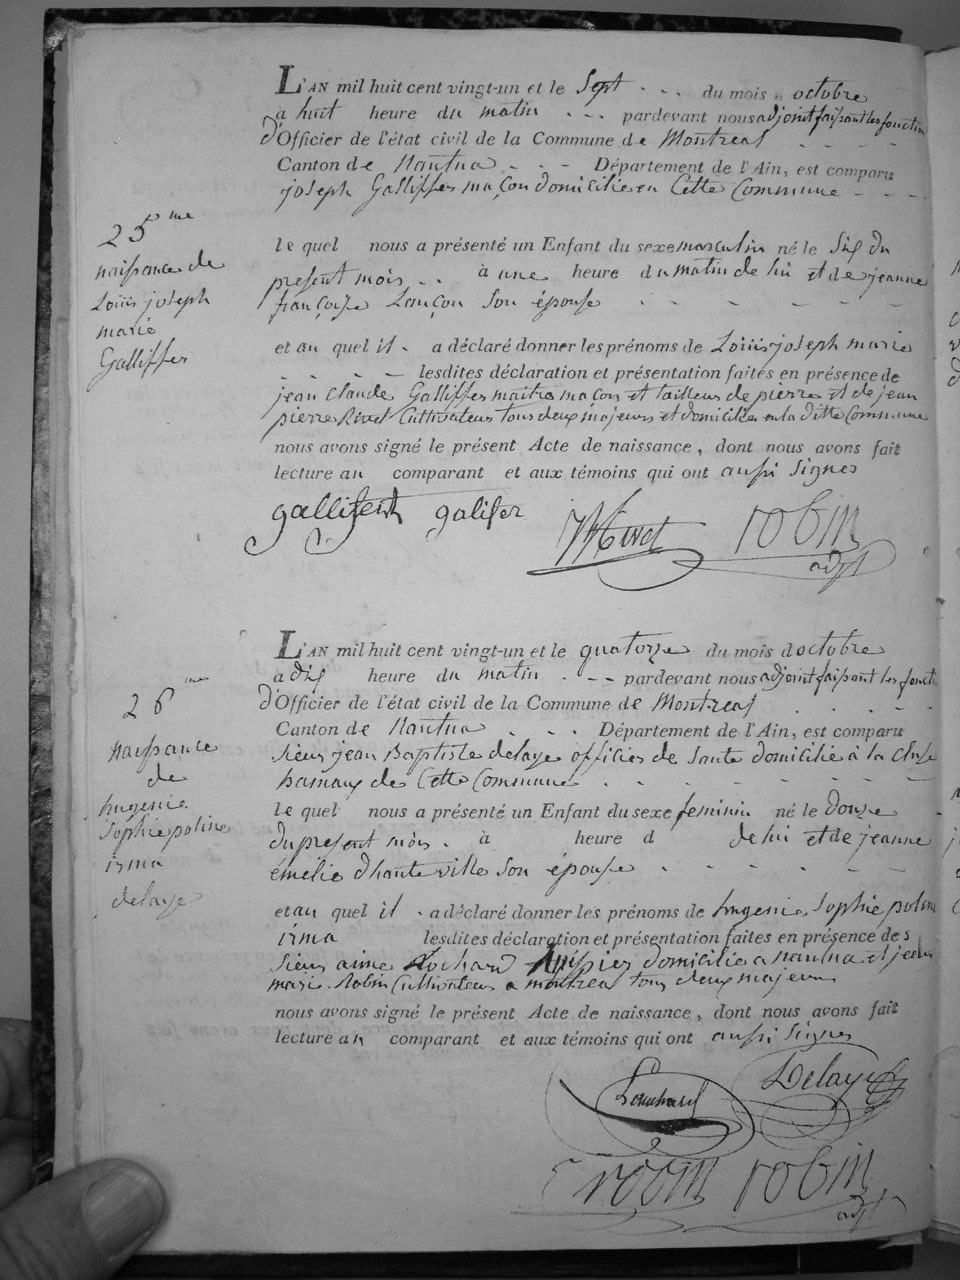 L'AN mil huit cent vingt-un et le Sept du mois octobre
a huit heure du matin pardevant nous adjoint faisant les fonction
d'Officier de l'état civil de la Commune de Montreal
Canton de Nantua Département de l'Ain, est comparu
joseph Galliffer maçon domicilié en Cette Commune
25me
naissance de
Loüis joseph
marie
Galliffer
le quel nous a présenté un Enfant du sexe masculin né le Six du
present mois à une heure du matin de lui et de jeanne
françoise Lançon Son épouse
et au quel il a déclaré donner les prénoms de Loüis joseph marie
lesdites déclaration et présentation faites en présence de
jean Claude Galliffer maitre maçon et tailleur de pierre et de jean
pierre Rivet Cultivateur tous deux majeurs et domiciliés en la ditte Commune
nous avons signé le présent Acte de naissance, dont nous avons fait
lecture au comparant et aux témoins qui ont aussi Signés
galifer
robin
adjt
L'AN mil huit cent vingt-un et le quatorze du mois d'octobre
a dix heure du matin pardevant nous adjoint faisant les fonct
d'Officier de l'état civil de la Commune de Montreal
Canton de Nantua Département de l'Ain, est comparu
Sieur jean Baptiste delaye officier de Santé domicilié à la Cluse
hamaux de Cette Commune
26me
naissance
de
hugenie
Sophie poline
irma
delaye
le quel nous a présenté un Enfant du sexe feminin né le douze
du present mois à heure d de lui et de jeanne
émélie d'hauteville Son épouse
et au quel il a déclaré donner les prénoms de hugenie Sophie poline
irma lesdites déclaration et présentation faites en présence des
Sieur aimé domicilié a nantua et jean
marie Robin Cultivateur a montreal tous deux majeurs
nous avons signé le présent Acte de naissance, dont nous avons fait
lecture au comparant et aux témoins qui ont aussi Signés
Delaye
robin robin
adjt